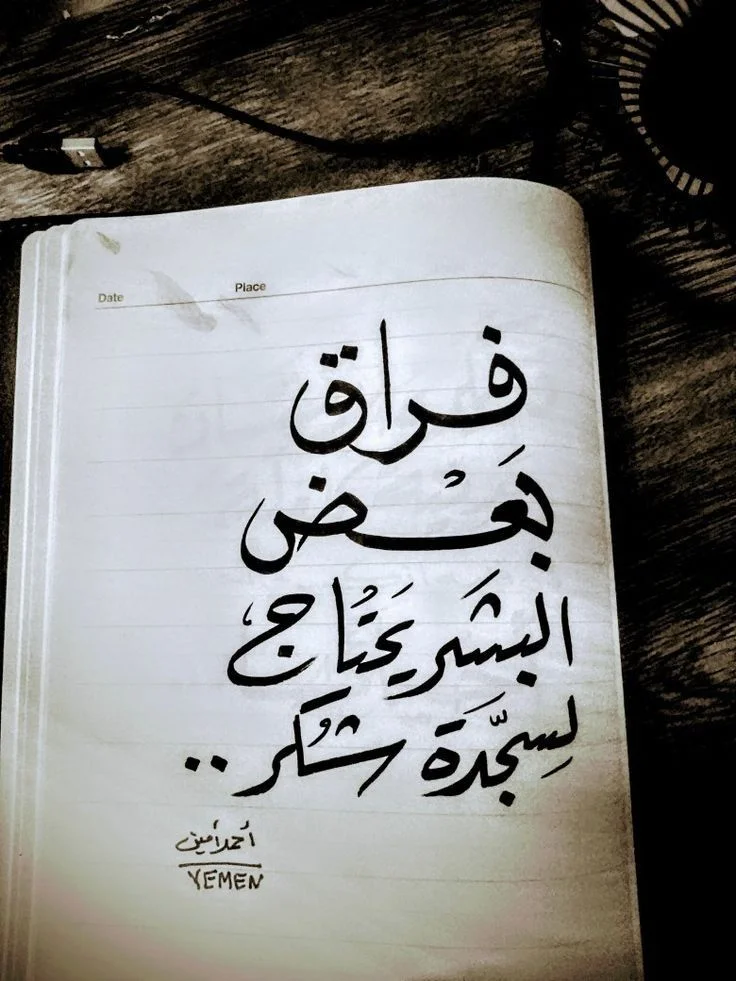 Date Place
فراق
بَعْض
البشَر يَحتُاج
لِسجّدَة شُكر ..
أحمد أمين
YEMEN